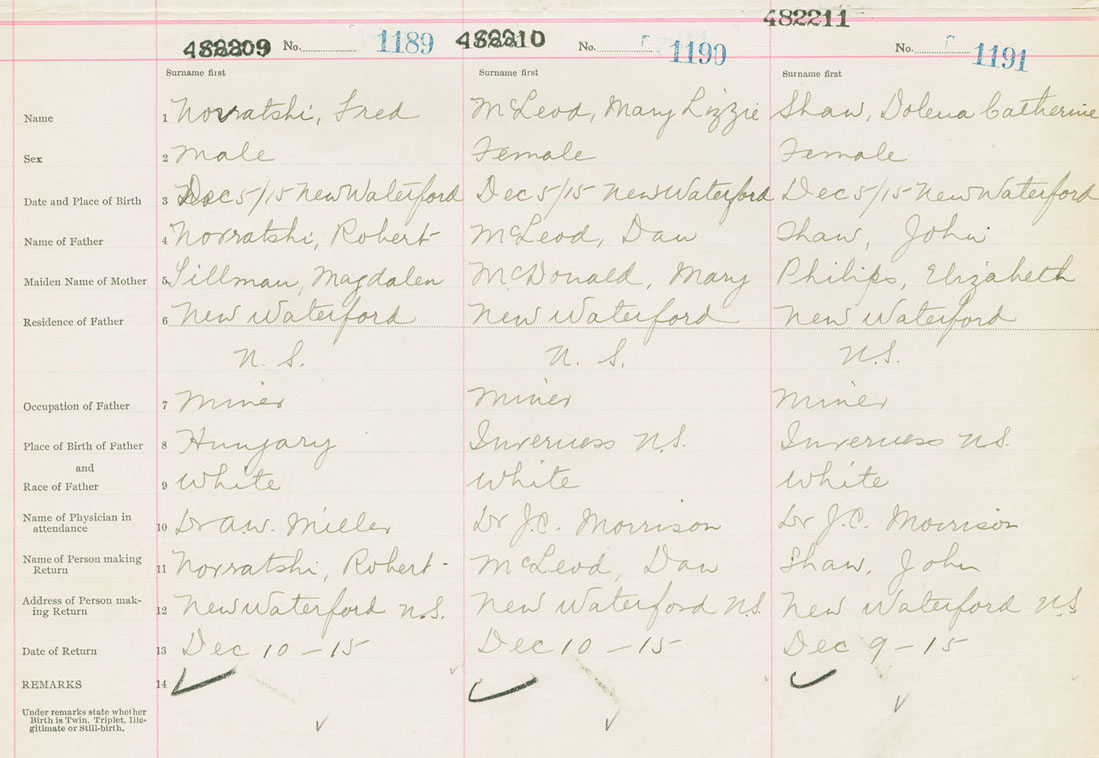 482209 No. 1189 482210 No. 1190 482211 No. 1191
Surname first Surname first Surname first
Name 1 Norratshi, Fred McLeod, Mary Lizzie Shaw, Dolena Catherine
Sex 2 Male Female Female
Date and Place of Birth 3 Dec 5/15 New Waterford Dec 5/15 New Waterford Dec 5/15 New Waterford
Name of Father 4 Norratshi, Robert McLeod, Dan Shaw, John
Maiden Name of Mother 5 Sillman, Magdalen McDonald, Mary Philips, Elizabeth
Residence of Father 6 New Waterford New Waterford New Waterford
N. S. N. S. N.S.
Occupation of Father 7 Miner Miner Miner
Place of Birth of Father 8 Hungary Inverness N.S. Inverness N.S.
and
Race of Father 9 White White White
Name of Physician in attendance 10 Dr A.W. Miller Dr J.C. Morrison Dr J.C. Morrison
Name of Person making Return 11 Norratshi, Robert- McLeod, Dan Shaw, John
Address of Person making Return 12 New Waterford N.S. New Waterford N.S. New Waterford N.S
Date of Return 13 Dec 10 – 15 Dec 10 – 15 Dec 9 – 15
REMARKS 14
Under remarks state whether
Birth is Twin, Triplet, Ille-
gitimate or Still-birth.